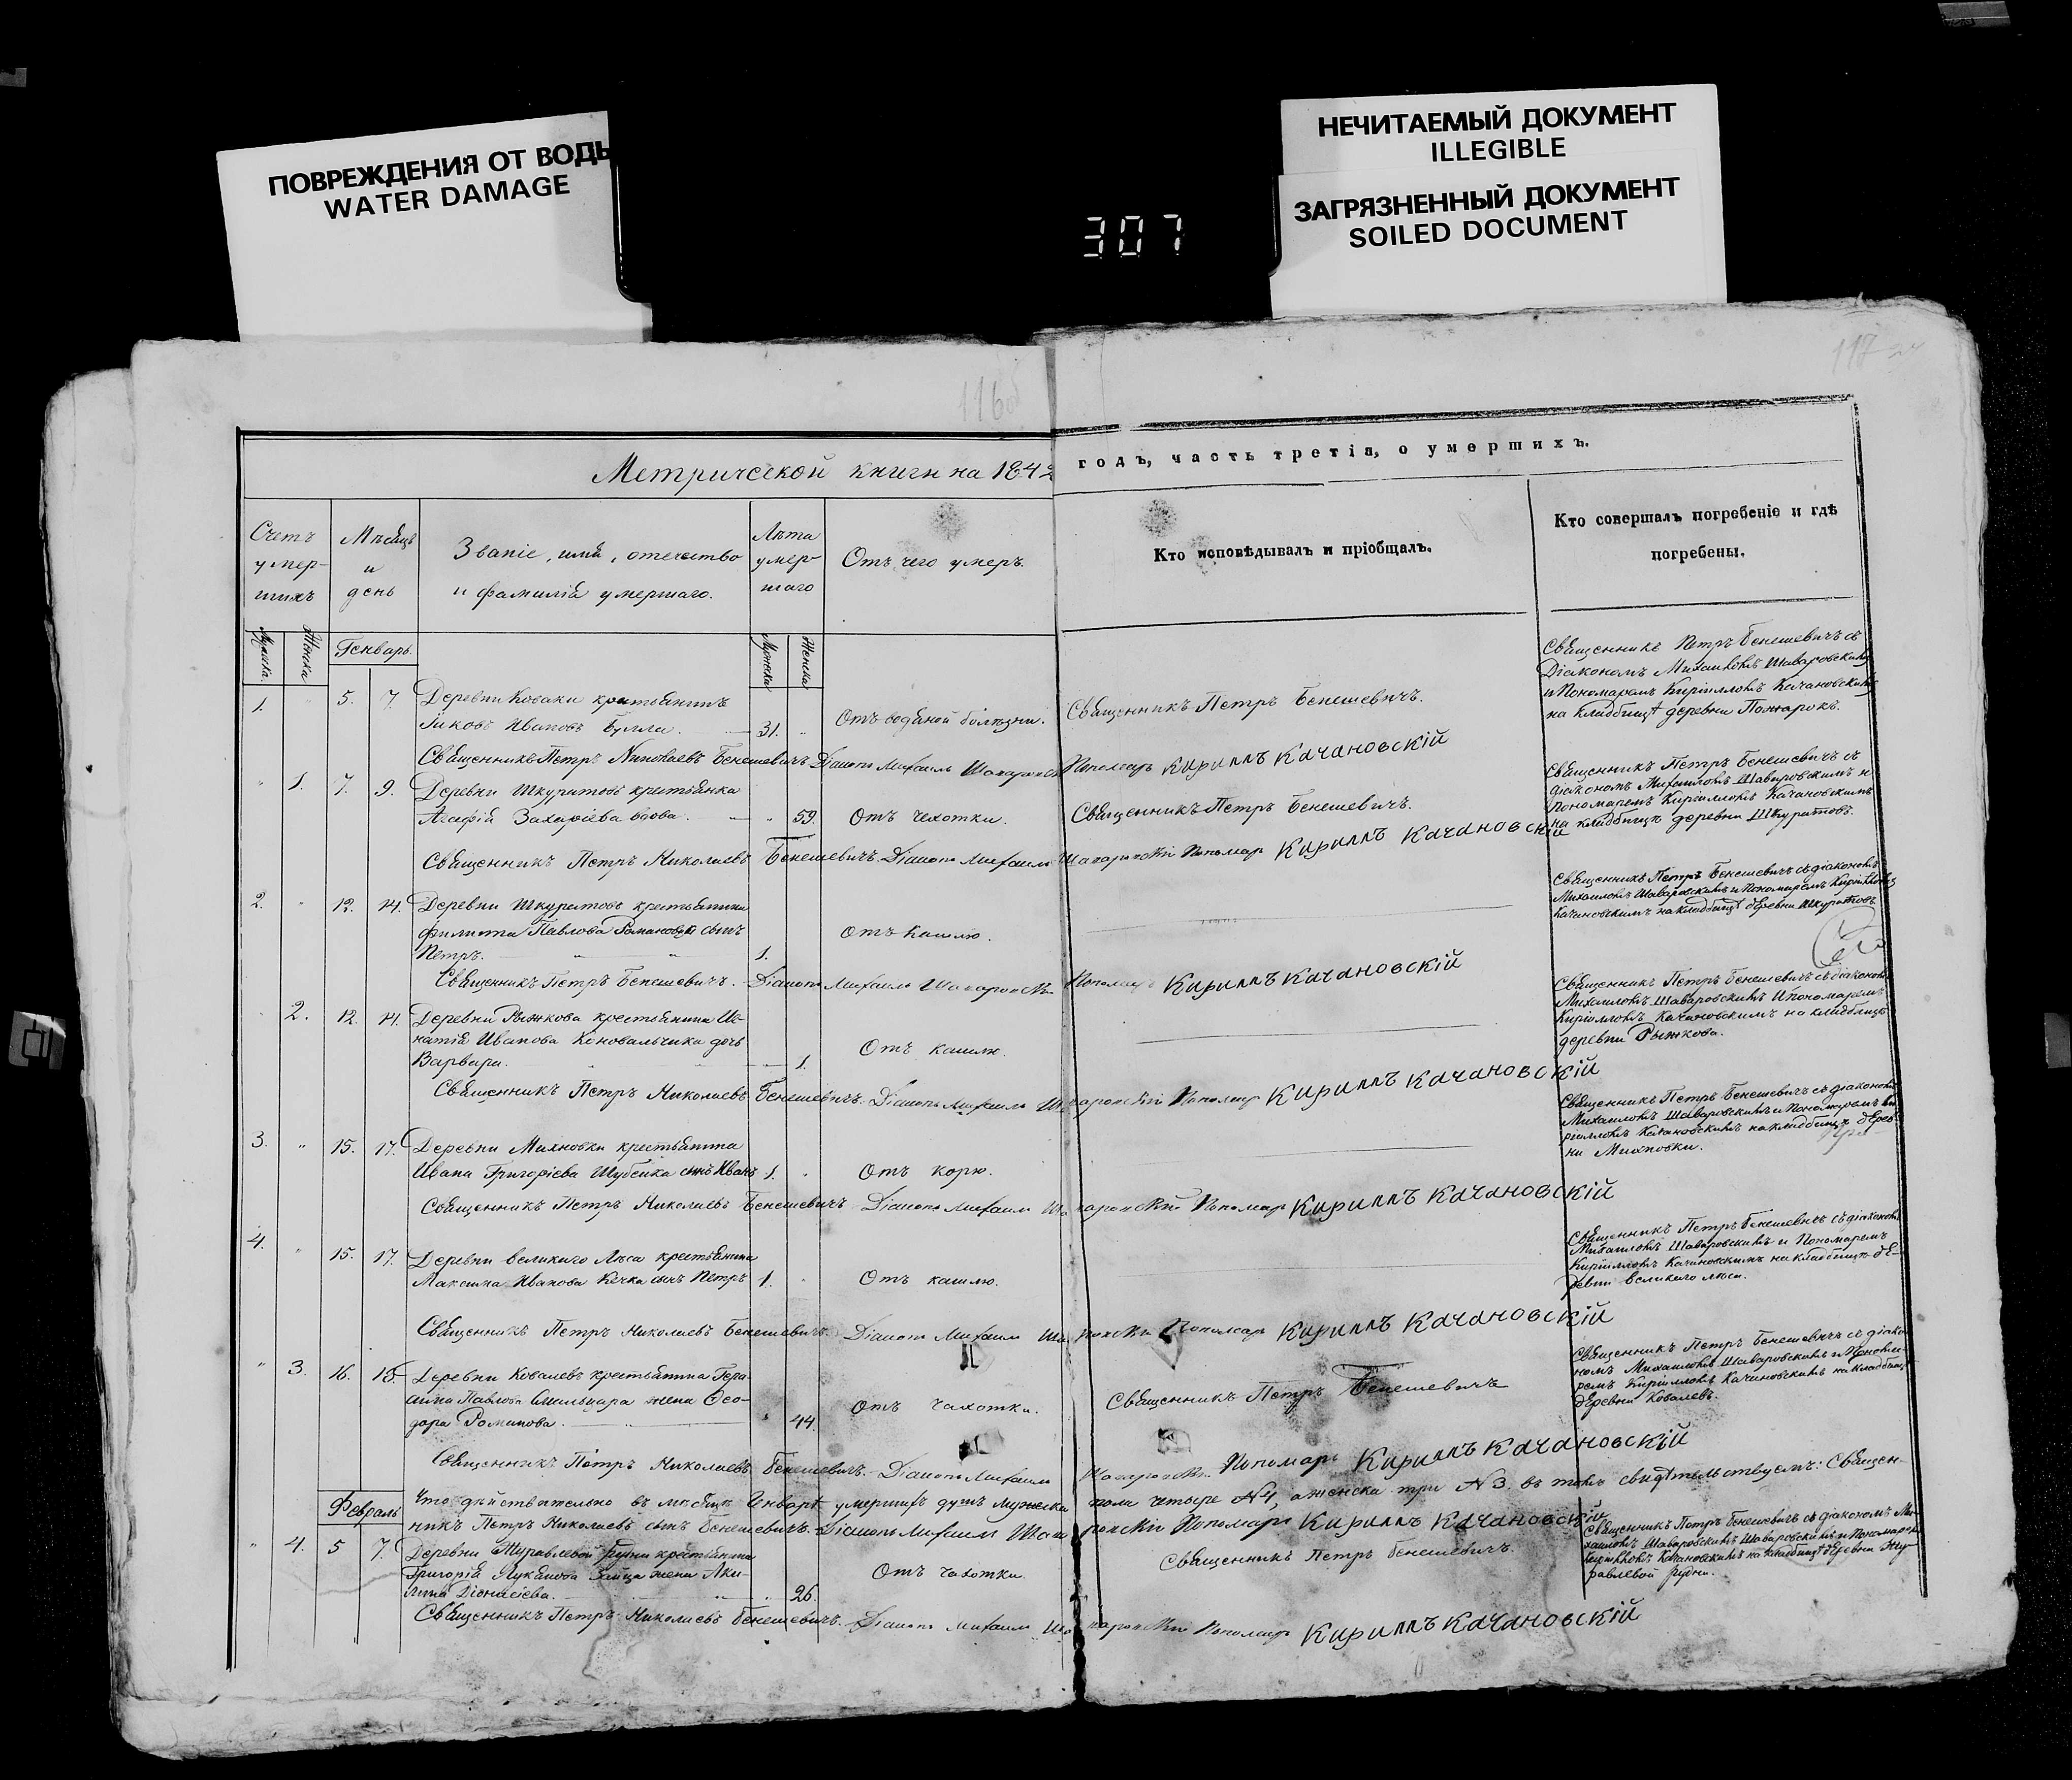 ПОВРЕЖДЕНИЯ ОТ ВОДЫ
WATER DAMAGE
НЕЧИТАЕМЫЙ ДОКУМЕНТ
ILLEGIBLE
ЗАГРЯЗНЕННЫЙ ДОКУМЕНТ
SOILED DOCUMENT
307
116об
117
Метрической книги на 1842 годъ, часть третія, о умершихъ.
Счетъ умер-
шихъ
Мѣсяцъ
и
день
Званіе, имя, отечество
и фамилія умершаго.
Лѣта
умер-
шаго
Отъ чего умеръ.
Кто исповѣдывалъ и пріобщалъ.
Кто совершалъ погребеніе и гдѣ
погребены.
Мужска.
Женска
Генварь.
Мужска
Женска
1. " 5. 7. Деревни Козаки крестьянинъ
Іаковъ Ивановъ Булла. 31. " Отъ водяной болѣзни. Священникъ Петръ Бенешевичъ.
Священникъ Петръ Бенешевичъ съ
Діакономъ Михаиломъ Шаваровскимъ
и Пономаремъ Кирилломъ Качановскимъ
на кладбищѣ деревни Пожарокъ.
Священникъ Петръ Николаевъ Бенешевичъ Діаконъ Михаилъ Шаваровскій Пономарь Кириллъ Качановскій
" 1. 7. 9. Деревни Шкуратовъ крестьянка
Агафія Захаріева вдова. " 59. Отъ чахотки. Священникъ Петръ Бенешевичъ.
Священникъ Петръ Бенешевичъ съ
діакономъ Михаиломъ Шаваровскимъ и
пономаремъ Кирилломъ Качановскимъ
на кладбищѣ деревни Шкуратовъ.
Священникъ Петръ Николаевъ Бенешевичъ. Діаконъ Михаилъ Шаваровскій Пономарь Кириллъ Качановскій
2. " 12. 14. Деревни Шкуратовъ крестьянина
Филиппа Павлова Романовца сынъ
Петръ. 1. Отъ кашлю.
Священникъ Петръ Бенешевичъ съ діакономъ
Михаиломъ Шаваровскимъ и Пономаремъ Кирилломъ
Качановскимъ на кладбищѣ деревни Шкуратовъ
Священникъ Петръ Бенешевичъ. Діаконъ Михаилъ Шаваровскій Пономарь Кириллъ Качановскій
2. 12. 14. Деревни Рыжкова крестьянина Иг-
натія Иванова Коновальчика дочь
Варвара. 1. Отъ кашлю.
Священникъ Петръ Бенешевичъ съ діакономъ
Михаиломъ Шаваровскимъ и пономаремъ
Кирилломъ Качановскимъ на кладбищѣ
деревни Рыжкова.
Священникъ Петръ Николаевъ Бенешевичъ. Діаконъ Михаилъ Шаваровскій Пономарь Кириллъ Качановскій
3. " 15. 17. Деревни Михновки крестьянина
Ивана Григоріева Шубенка сынъ Иванъ 1. " Отъ корю.
Священникъ Петръ Бенешевичъ съ діакономъ
Михаиломъ Шаваровскимъ и Пономаремъ Ки-
рилломъ Качановскимъ на кладбищѣ дерев-
ни Михновки.
Священникъ Петръ Николаевъ Бенешевичъ Діаконъ Михаилъ Шаваровскій Пономарь Кириллъ Качановскій
4. " 15. 17. Деревни великаго Лѣса крестьянина
Максима Иванова Кечка сынъ Петръ 1. " Отъ кашлю.
Священникъ Петръ Бенешевичъ съ діакономъ
Михаиломъ Шаваровскимъ и Пономаремъ
Кирилломъ Качановскимъ на кладбищѣ де-
ревни великаго лѣса.
Священникъ Петръ Николаевъ Бенешевичъ. Діаконъ Михаилъ Шаваровскій Пономарь Кириллъ Качановскій
" 3. 16. 18. Деревни Ковалевъ крестьянина Гера-
сима Павлова жена Фео-
дора Романова. " 44. Отъ чахотки. Священникъ Петръ Бенешевичъ
Священникъ Петръ Бенешевичъ съ діако-
номъ Михаиломъ Шаваровскимъ и Понома-
ремъ Кирилломъ Качановскимъ на кладбищѣ
деревни Ковалевъ.
Священникъ Петръ Николаевъ Бенешевичъ. Діаконъ Михаилъ Шаваровскій Пономарь Кириллъ Качановскій
Что дѣйствительно въ мѣсяцѣ Генварѣ умершихъ душъ мужеска пола четыре №4, а женска три №3. въ томъ свидѣтельствуемъ: Священ-
никъ Петръ Николаевъ сынъ Бенешевичъ. Діаконъ Михаилъ Шаваровскій Пономарь Кириллъ Качановскій
Февраль
" 4. 5 7. Деревни Журавлевой Рудни крестьянина
Григорія Лукьянова Зайца жена Аки-
лина Діонисіева. " 26. Отъ чахотки. Священникъ Петръ Бенешевичъ.
Священникъ Петръ Бенешевичъ съ діакономъ Ми-
хаиломъ Шаваровскимъ и Пономаремъ
Кирилломъ Качановскимъ на кладбищѣ деревни Жу-
равлевой Рудни.
Священникъ Петръ Николаевъ Бенешевичъ. Діаконъ Михаилъ Шаваровскій Пономарь Кириллъ Качановскій